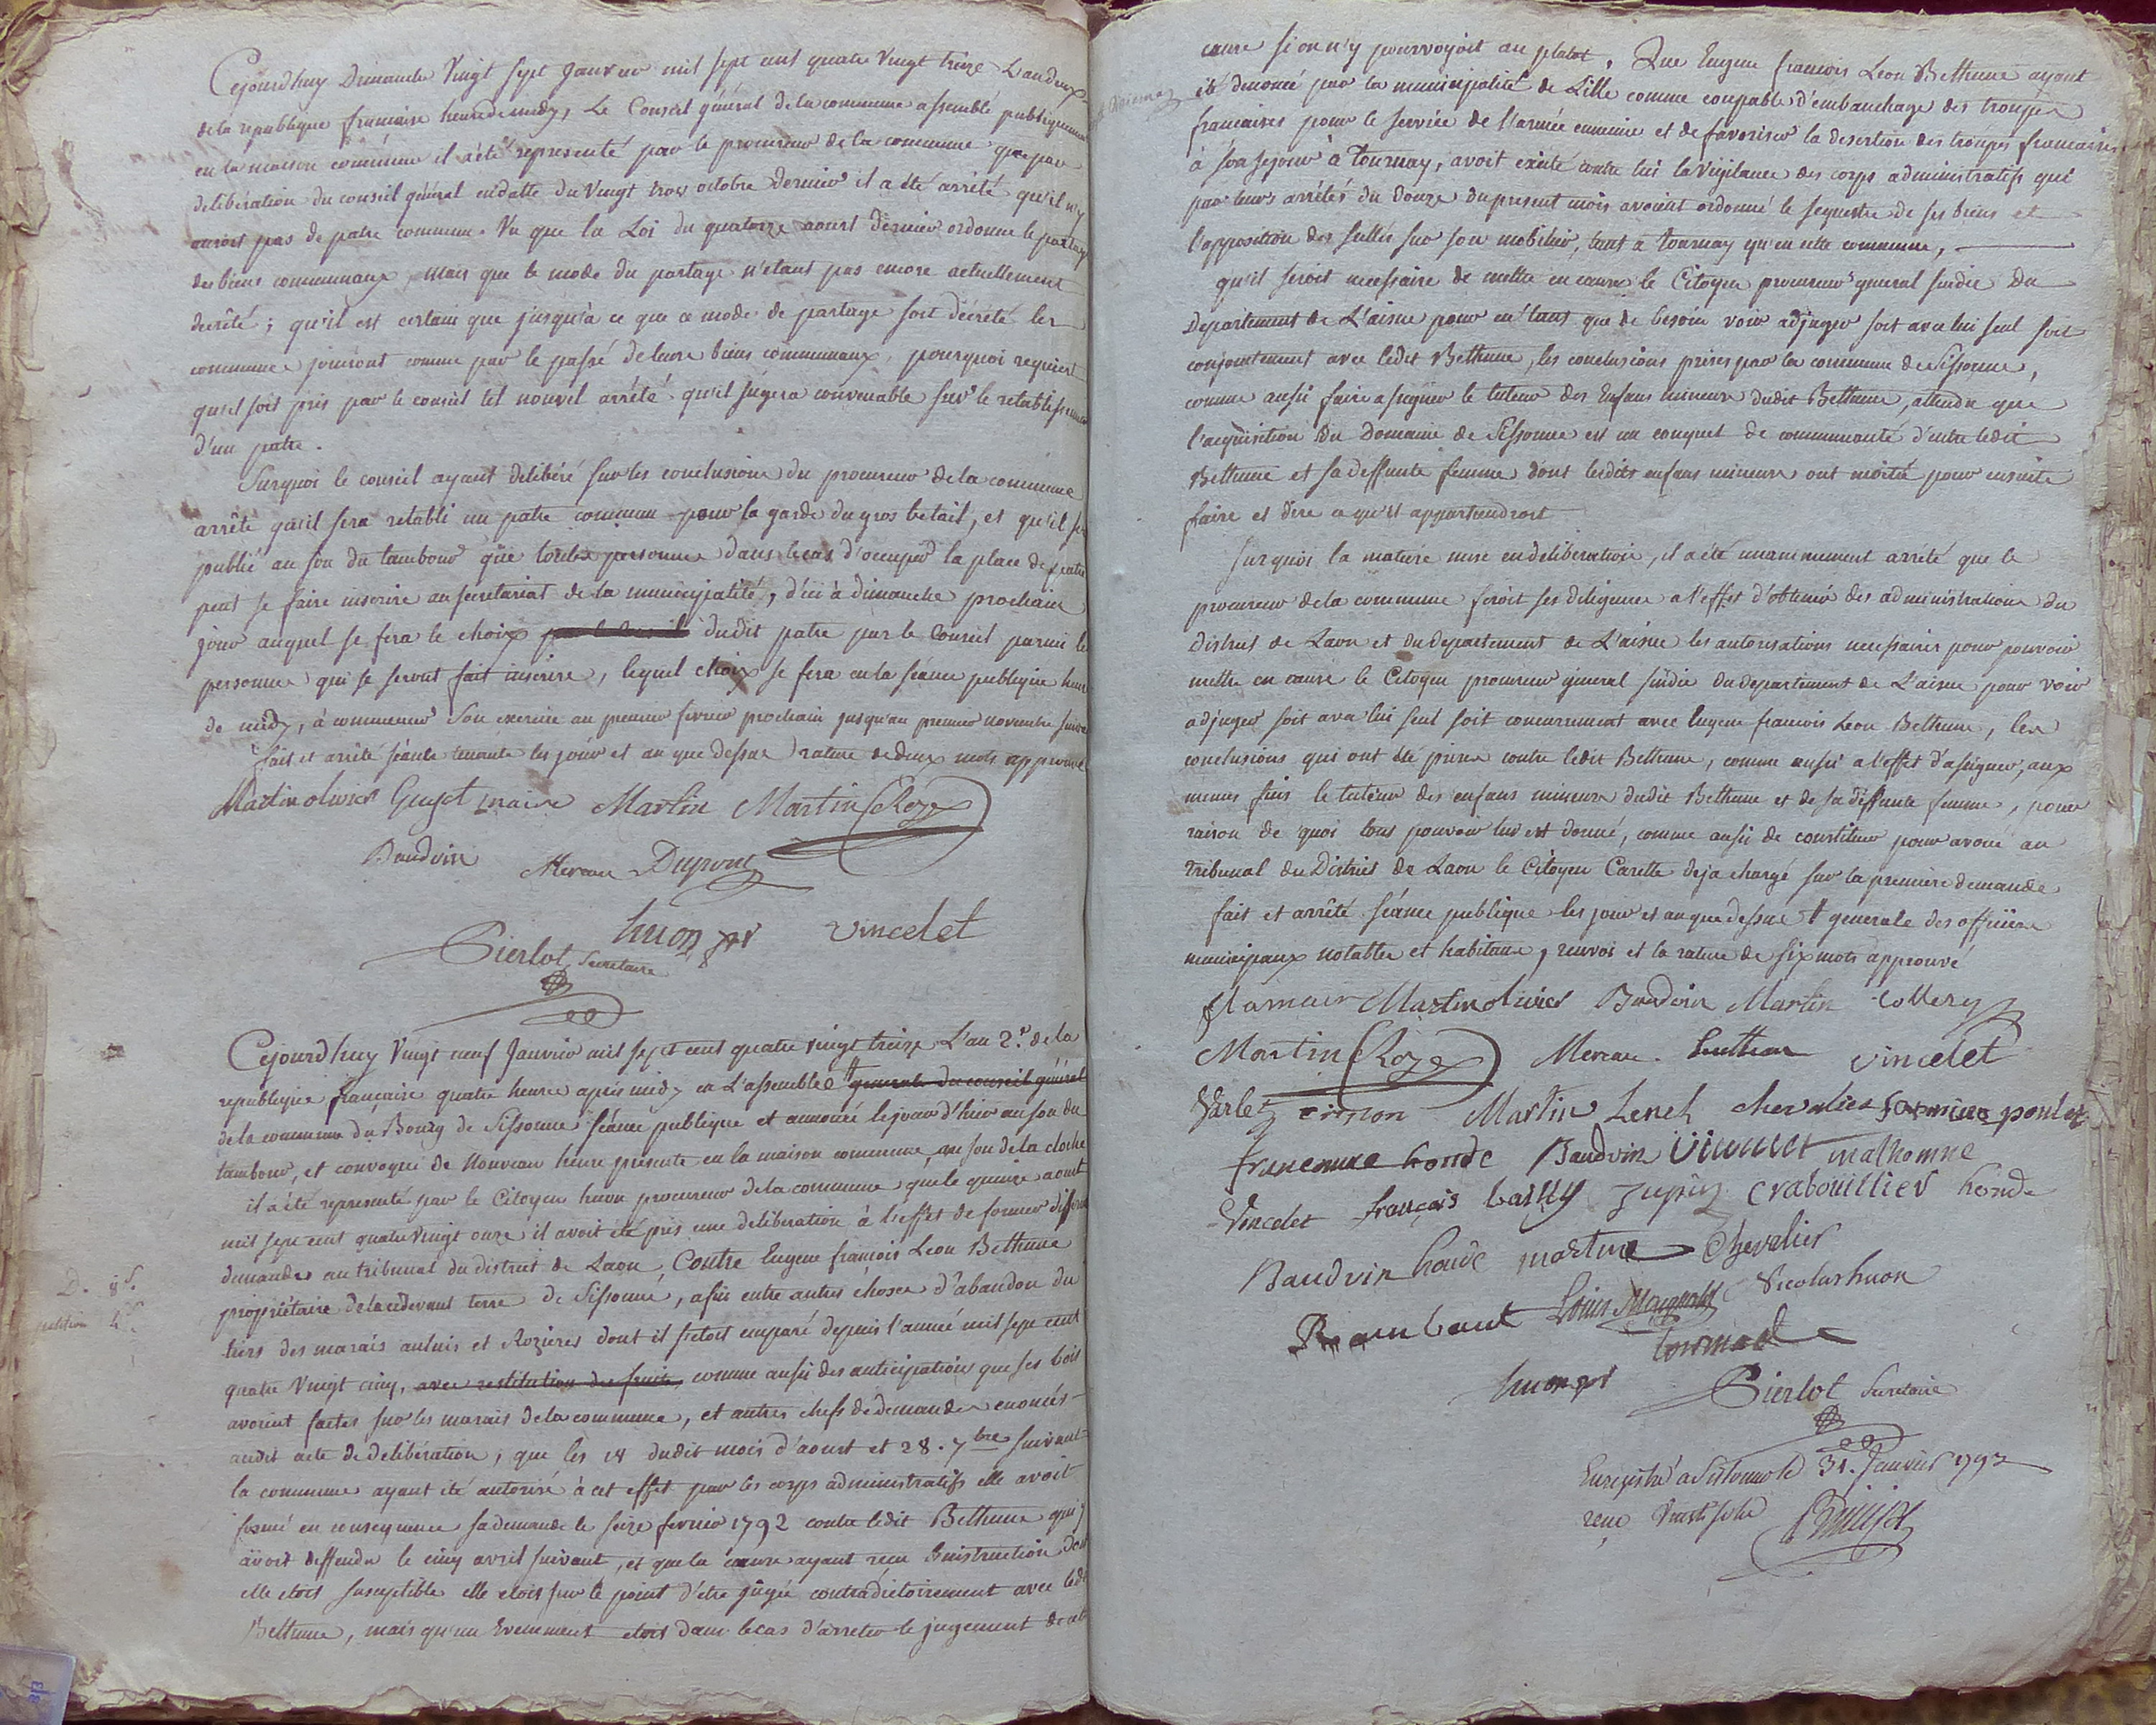 Cejourdhuy Dimanche Vingt Sept Janvier mil sept cent quatre Vingt treize L'an deux
de la republique francaise heure de midy, Le Conseil général de la commune assemblé publiquement
en la maison commune il a été representé par le procureur de la commune que par
deliberation du conseil général en datte du Vingt trois octobre Dernier il a été arrêté qu'il n'y
auroit pas de patre commun. Vu que la Loi du quatorze aoust Dernier ordonne le partage
des biens communaux, mais que le mode du partage n'etant pas encore actuellement
decrêté; qu'il est certain que jusqu'à ce que ce mode de partage soit décrété les
communes jouiront comme par le passé de leurs biens communaux, pourquoi requiert
qu'il soit pris par le conseil tel nouvel arrêté qu'il jugera convenable sur le retablissement
d'un patre.
Surquoi le conseil ayant delibéré sur les conclusions du procureur de la commune
arrête qu'il sera retabli un patre commun pour la garde du gros betail, et qu'il sera
publié au son du tambour que toutes personnes dans le cas d'occuper la place de patre
peut se faire inscrire au secretariat de la municipalité, d'ici à dimanche prochain
jour auquel se fera le choix par le Conseil dudit patre par le Conseil parmi les
personnes qui se seront fait inscrire, lequel choix se fera en la séance publique heure
de midy, à commencer Son exercice au premier fevrier prochain jusqu'au premier novembre suivant
fait et arrêté séance tenante les jour et an que dessus rature de deux mots approuvé
Martin olivier Guyot maire Martin Martin Cloze
Baudvin Mereau Dupont
huon pr vincelet
Pierlot Secretaire
Cejourdhuy Vingt neuf Janvier mil sept cent quatre vingt treize L'an 2e de la
republique française quatre heures après midy en L'assemblée generale du conseil général
de la commune du Bourg de Sissonne séance publique et annoncé le jour d'hier au son du
tambour, et convoqué de Nouveau heure presente en la maison commune, au son de la cloche
il a été representé par le Citoyen huon procureur de la commune que le quinze aoust
mil sept cent quatre Vingt onze il avoit été pris une deliberation à l'effet de former differentes
demandes au tribunal du district de Laon, Contre Eugene francois Leon Bethune
propriétaire de la cidevant terre de Sissonne, afin entre autres choses d'abandon du
tiers des marais aulnis et Rozieres dont il s'etoit emparé depuis l'année mil sept cent
quatre Vingt cinq, avec restitution des fruits, comme aussi des anticipations que ses bois
avoient faites sur les marais de la commune, et autres chefs de demandes enoncés
audit acte de deliberation; que les 18 dudit mois d'aoust et 28. 7bre suivant
la commune ayant été autorisée à cet effet par les corps administratifs elle avoit
formé en consequence sa demande le seize fevrier 1792 contre ledit Bethune qui y
avoit deffendu le cinq avril suivant, et que la cause ayant reçu l'instruction dont
elle etoit susceptible elle etoit sur le point d'etre jugée contradictoirement avec ledit
Bethune, mais qu'un Evenement etoit dans le cas d'arreter le jugement de cette
D. 8s.
4s.
cause si on n'y pourvoyoit au plutot, Que Eugene francois Leon Bethune ayant
été denoncé par la municipalité de Lille comme coupable d'embauchage des troupes
francaises pour le service de l'armée ennemie et de favoriser la desertion des troupes francaises
à son sejour à Tournay, avoit excité contre lui la vigilance des corps administratifs qui
par leurs arrêtés du douze du present mois avoient ordonné le sequestre de ses biens et
l'apposition des scellés sur son mobilier, tant a Tournay qu'en cette commune,
qu'il seroit necessaire de mettre en cause le Citoyen procureur general sindic du
Departement de L'aisne pour en tant que de besoin voir adjuger soit avec lui seul soit
conjointement avec ledit Bethune, les conclusions prises par la commune de Sissonne,
comme aussi faire assigner le tuteur des Enfans mineurs dudit Bethune, attendu que
l'acquisition du Domaine de Sissonne est un conquet de communauté d'entre ledit
Bethune et sa deffunte femme dont lesdits enfans mineurs ont moitié pour ensuite
faire et dire ce qu'il appartiendroit
Surquoi la matiere mise en deliberation, il a été unanimement arrêté que le
procureur de la commune feroit ses diligences a l'effet d'obtenir des administrations du
District de Laon et du departement de L'aisne les autorisations necessaires pour pouvoir
mettre en cause le Citoyen procureur general sindic du departement de L'aisne pour voir
adjuger soit avec lui seul soit concurremment avec Eugene francois Leon Bethune, les
conclusions qui ont été prises contre ledit Bethune, comme aussi a l'effet d'assigner, aux
memes fins le tuteur des enfans mineurs dudit Bethune et de sa deffunte femme, pour
raison de quoi tous pouvoir lui est donné, comme aussi de constituer pour avoué au
Tribunal du District de Laon le Citoyen Carette deja chargé sur la premiere demande
fait et arrêté séance publique les jour et an que dessus # generale des officiers
municipaux notables et habitans, renvoi et la rature de six mots approuvé
flamain Martin olivier Baudvin Martin Collery
Martin Cloze Mereau vincelet
Varlet Simon Martin Lenel chevalier
honde Baudvin malhomme
Vincelet françois bailly Jupin Crabouillier honde
Baudvin houde martine Chevalier
Rambaut Louis Nicolas huon
huon pr
Pierlot Secretaire
Enregistré a Sissonne le 31. Janvier 1793
recu Vingt sols